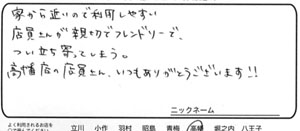 家から近いので利用しやすい
店員さんが親切でフレンドリーで、
つい立ち寄ってしまう。
高幡店の店員さん、いつもありがとうございます!!
ニックネーム
よく利用されるお店を
○で囲んでください
立川 小作 羽村 昭島 青梅 高幡 堀之内 八王子